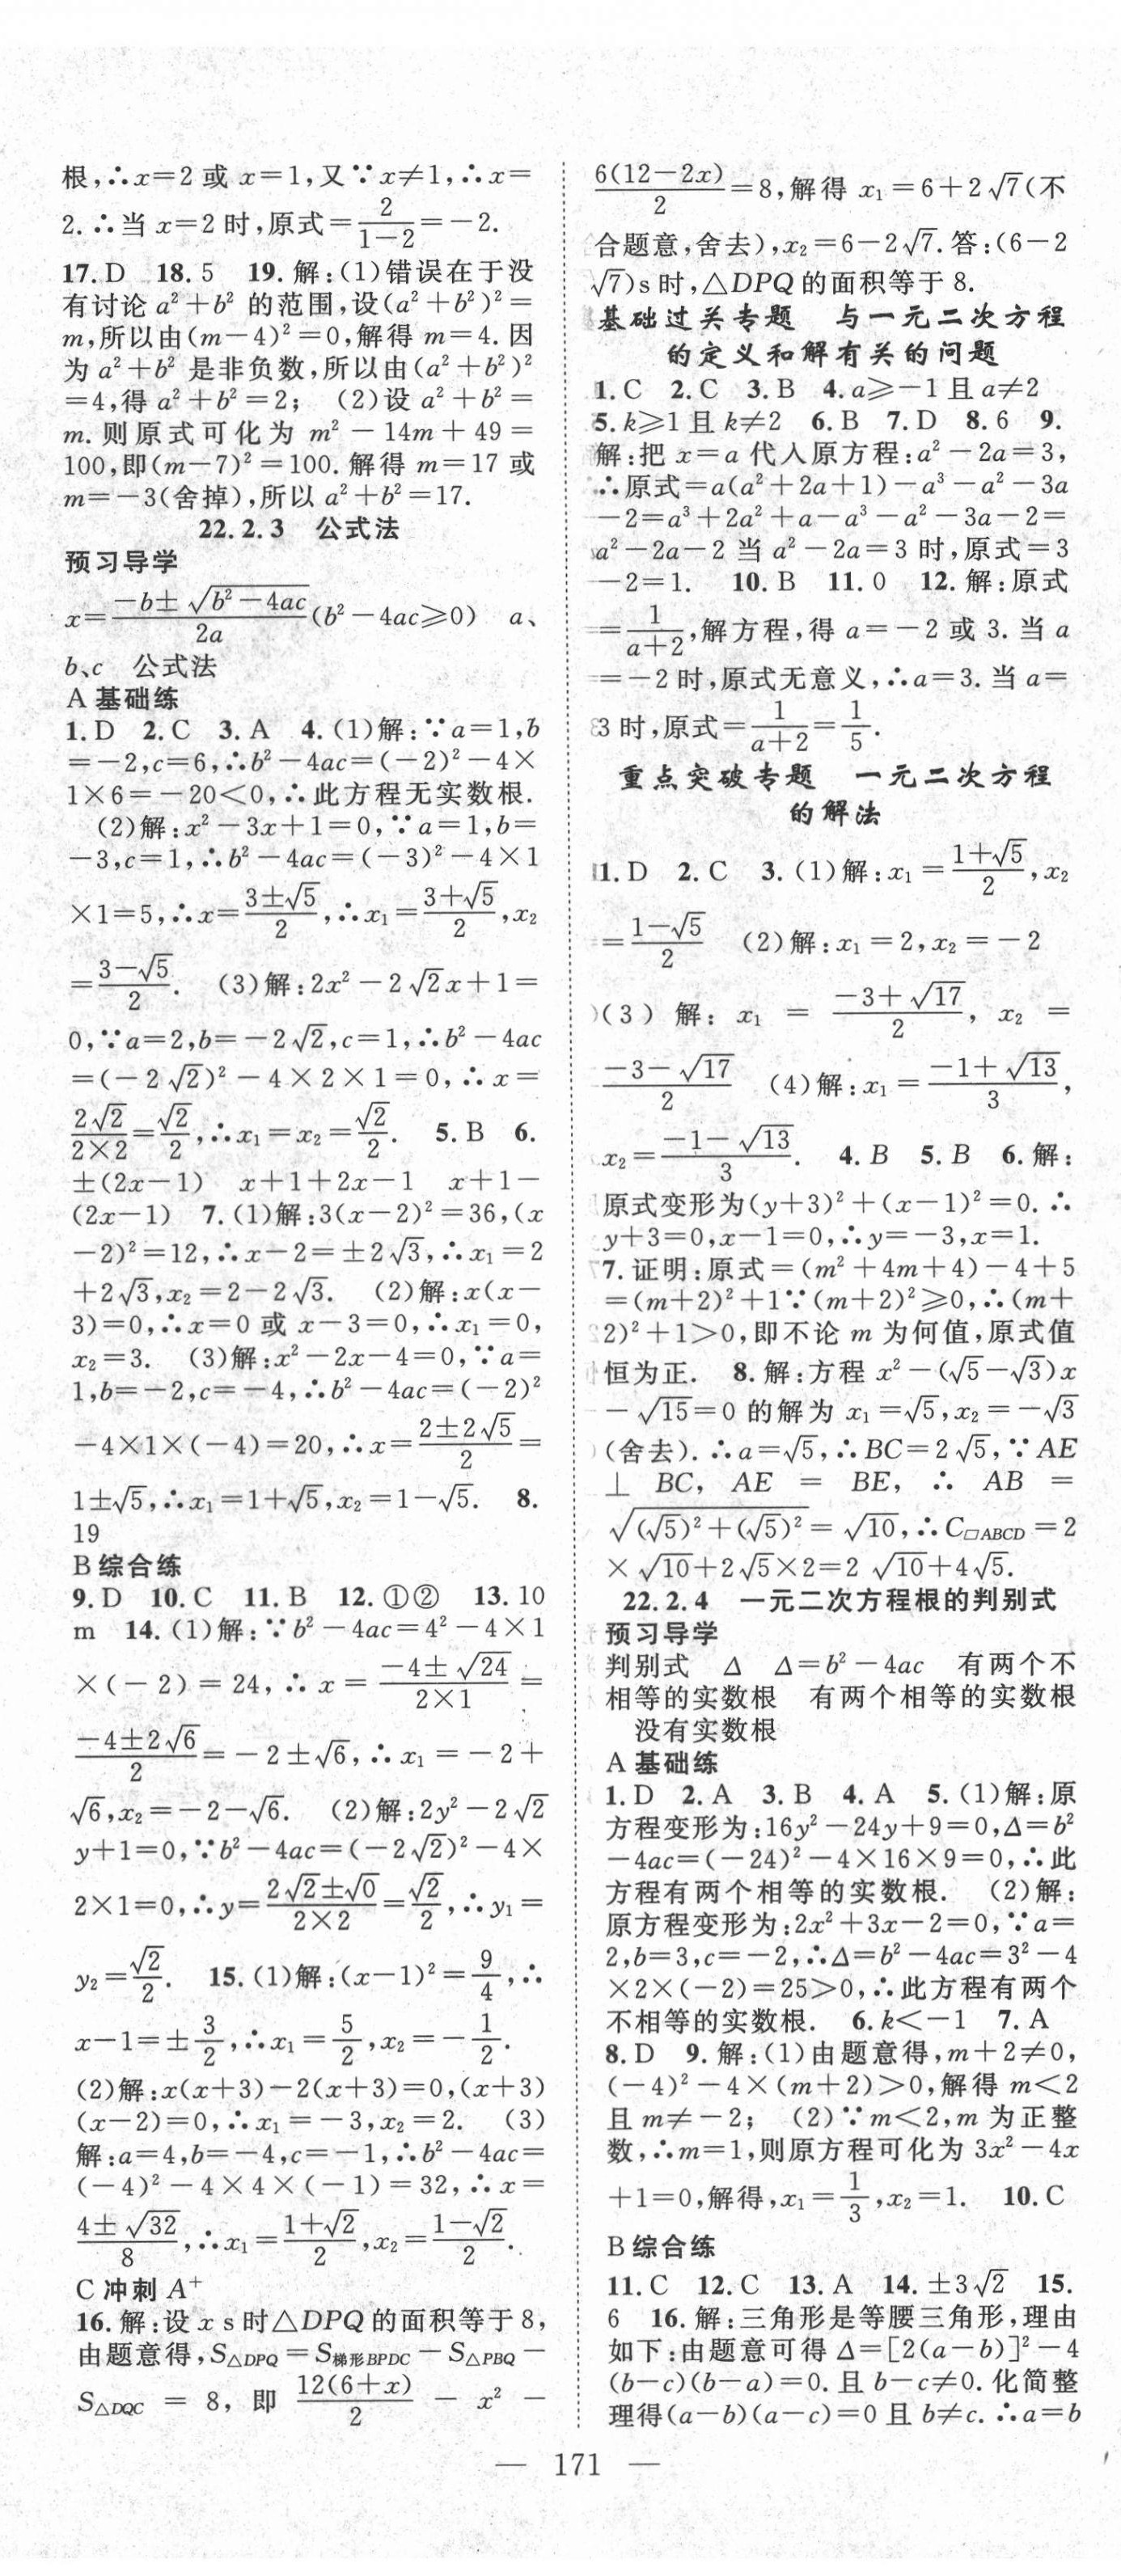 根,∴x=2 或 x=1,又∵x≠1,∴x=
2.∴当 x=2 时,原式=\frac{2}{1-2}=-2.
17.D 18.5 19.解:(1)错误在于没
有讨论 a²+b² 的范围,设(a²+b²)²=
m,所以由(m-4)²=0,解得 m=4.因
为 a²+b² 是非负数,所以由(a²+b²)²
=4,得 a²+b²=2; (2)设 a²+b²=
m.则原式可化为 m²-14m+49=
100,即(m-7)²=100.解得 m=17 或
m=-3(舍掉),所以 a²+b²=17.
22.2.3 公式法
预习导学
x=\frac{-b±√(b²-4ac)}{2a}(b²-4ac≥0) a、
b、c 公式法
A 基础练
1.D 2.C 3.A 4.(1)解:∵a=1,b
=-2,c=6,∴b²-4ac=(-2)²-4×
1×6=-20<0,∴此方程无实数根.
(2)解:x²-3x+1=0,∵a=1,b=
-3,c=1,∴b²-4ac=(-3)²-4×1
×1=5,∴x=\frac{3±√5}{2},∴x₁=\frac{3+√5}{2},x₂
=\frac{3-√5}{2}. (3)解:2x²-2√2x+1=
0,∵a=2,b=-2√2,c=1,∴b²-4ac
=(-2√2)²-4×2×1=0,∴x=
\frac{2√2}{2×2}=\frac{√2}{2},∴x₁=x₂=\frac{√2}{2}. 5.B 6.
±(2x-1) x+1+2x-1 x+1-
(2x-1) 7.(1)解:3(x-2)²=36,(x
-2)²=12,∴x-2=±2√3,∴x₁=2
+2√3,x₂=2-2√3. (2)解:x(x-
3)=0,∴x=0 或 x-3=0,∴x₁=0,
x₂=3. (3)解:x²-2x-4=0,∵a=
1,b=-2,c=-4,∴b²-4ac=(-2)²
-4×1×(-4)=20,∴x=\frac{2±2√5}{2}=
1±√5,∴x₁=1+√5,x₂=1-√5. 8.
19
B 综合练
9.D 10.C 11.B 12.①② 13.10
m 14.(1)解:∵b²-4ac=4²-4×1
×(-2)=24,∴x=\frac{-4±√24}{2×1}=
\frac{-4±2√6}{2}=-2±√6,∴x₁=-2+
√6,x₂=-2-√6. (2)解:2y²-2√2
y+1=0,∵b²-4ac=(-2√2)²-4×
2×1=0,∴y=\frac{2√2±√0}{2×2}=\frac{√2}{2},∴y₁=
y₂=\frac{√2}{2}. 15.(1)解:(x-1)²=\frac{9}{4},∴
x-1=±\frac{3}{2},∴x₁=\frac{5}{2},x₂=-\frac{1}{2}.
(2)解:x(x+3)-2(x+3)=0,(x+3)
(x-2)=0,∴x₁=-3,x₂=2. (3)
解:a=4,b=-4,c=-1,∴b²-4ac=
(-4)²-4×4×(-1)=32,∴x=
\frac{4±√32}{8},∴x₁=\frac{1+√2}{2},x₂=\frac{1-√2}{2}.
C 冲刺 A⁺
16.解:设 x s 时△DPQ 的面积等于 8,
由题意得,S△DPQ=S梯形BPDC-S△PBQ-
S△DQC=8,即\frac{12(6+x)}{2}-x²-
\frac{6(12-2x)}{2}=8,解得 x₁=6+2√7(不
合题意,舍去),x₂=6-2√7.答:(6-2
√7)s 时,△DPQ 的面积等于 8.
基础过关专题 与一元二次方程
的定义和解有关的问题
1.C 2.C 3.B 4.a≥-1 且 a≠2
5.k≥1 且 k≠2 6.B 7.D 8.6 9.
解:把 x=a 代入原方程:a²-2a=3,
∴原式=a(a²+2a+1)-a³-a²-3a
-2=a³+2a²+a-a³-a²-3a-2=
a²-2a-2 当 a²-2a=3 时,原式=3
-2=1. 10.B 11.0 12.解:原式
=\frac{1}{a+2},解方程,得 a=-2 或 3.当 a
=-2 时,原式无意义,∴a=3.当 a=
3 时,原式=\frac{1}{a+2}=\frac{1}{5}.
重点突破专题 一元二次方程
的解法
1.D 2.C 3.(1)解:x₁=\frac{1+√5}{2},x₂
=\frac{1-√5}{2} (2)解:x₁=2,x₂=-2
(3)解:x₁=\frac{-3+√17}{2},x₂=
\frac{-3-√17}{2} (4)解:x₁=\frac{-1+√13}{3},
x₂=\frac{-1-√13}{3}. 4.B 5.B 6.解:
原式变形为(y+3)²+(x-1)²=0.∴
y+3=0,x-1=0,∴y=-3,x=1.
7.证明:原式=(m²+4m+4)-4+5
=(m+2)²+1∵(m+2)²≥0,∴(m+
2)²+1>0,即不论 m 为何值,原式值
恒为正. 8.解:方程 x²-(√5-√3)x
-√15=0 的解为 x₁=√5,x₂=-√3
(舍去).∴a=√5,∴BC=2√5,∵AE
⊥BC,AE=BE,∴AB=
√((√5)²+(√5)²)=√10,∴C▱ABCD=2
×√10+2√5×2=2√10+4√5.
22.2.4 一元二次方程根的判别式
预习导学
判别式 Δ Δ=b²-4ac 有两个不
相等的实数根 有两个相等的实数根
没有实数根
A 基础练
1.D 2.A 3.B 4.A 5.(1)解:原
方程变形为:16y²-24y+9=0,Δ=b²
-4ac=(-24)²-4×16×9=0,∴此
方程有两个相等的实数根. (2)解:
原方程变形为:2x²+3x-2=0,∵a=
2,b=3,c=-2,∴Δ=b²-4ac=3²-4
×2×(-2)=25>0,∴此方程有两个
不相等的实数根. 6.k<-1 7.A
8.D 9.解:(1)由题意得,m+2≠0,
(-4)²-4×(m+2)>0,解得 m<2
且 m≠-2; (2)∵m<2,m 为正整
数,∴m=1,则原方程可化为 3x²-4x
+1=0,解得,x₁=\frac{1}{3},x₂=1. 10.C
B 综合练
11.C 12.C 13.A 14.±3√2 15.
6 16.解:三角形是等腰三角形,理由
如下:由题意可得 Δ=[2(a-b)]²-4
(b-c)(b-a)=0.且 b-c≠0.化简整
理得(a-b)(a-c)=0 且 b≠c.∴a=b
— 171 —